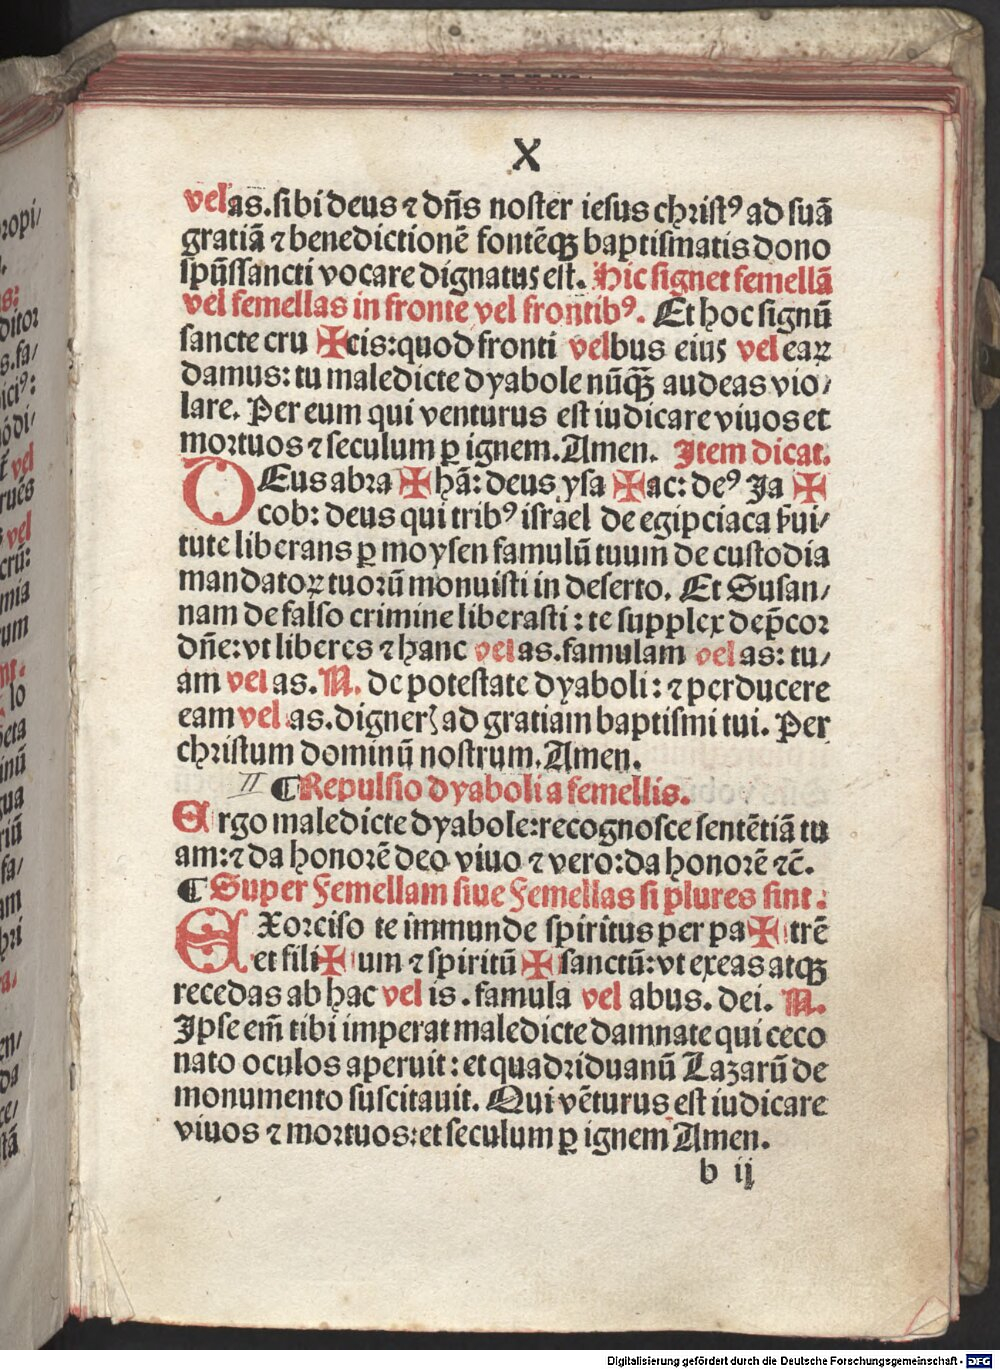 X
vel as. sibi deus ⁊ dn̄s noster iesus christꝰ ad suā
gratiā ⁊ benedictionē fontēqꝫ baptismatis dono
spūssancti vocare dignatus est. Hic signet femellā
vel femellas in fronte vel frontibꝰ. Et hoc signū
sancte cru ✠ cis: quod fronti vel bus eius vel eaꝝ
damus: tu maledicte dyabole nūqꝫ audeas vio/
lare. Per eum qui venturus est iudicare viuos et
mortuos ⁊ seculum ꝑ ignem. Amen. Item dicat.
DEus abra ✠ hā: deus ysa ✠ ac: deꝰ Ja ✠
cob: deus qui tribꝰ israel de egipciaca sui/
tute liberans ꝑ moysen famulū tuum de custodia
mandatoꝝ tuorū monuisti in deserto. Et Susan/
nam de falso crimine liberasti: te supplex dep̄cor
dn̄e: vt liberes ⁊ hanc vel as. famulam vel as: tu/
am vel as. N. de potestate dyaboli: ⁊ perducere
eam vel as. digneris ad gratiam baptismi tui. Per
christum dominū nostrum. Amen.
II ¶ Repulsio dyaboli a femellis.
Ergo maledicte dyabole: recognosce sentētiā tu
am: ⁊ da honorē deo viuo ⁊ vero: da honorē ⁊c̄.
¶ Super Femellam siue Femellas si plures sint:
EXorciso te immunde spiritus per pa ✠ trē
et fili ✠ um ⁊ spiritū ✠ sanctū: vt exeas atqꝫ
recedas ab hac vel is. famula vel abus. dei. N.
Ipse em̄ tibi imperat maledicte damnate qui ceco
nato oculos aperuit: et quadriduanū Lazarū de
monumento suscitauit. Qui vēturus est iudicare
viuos ⁊ mortuos: et seculum ꝑ ignem Amen.
b ij
Digitalisierung gefördert durch die Deutsche Forschungsgemeinschaft - DFG